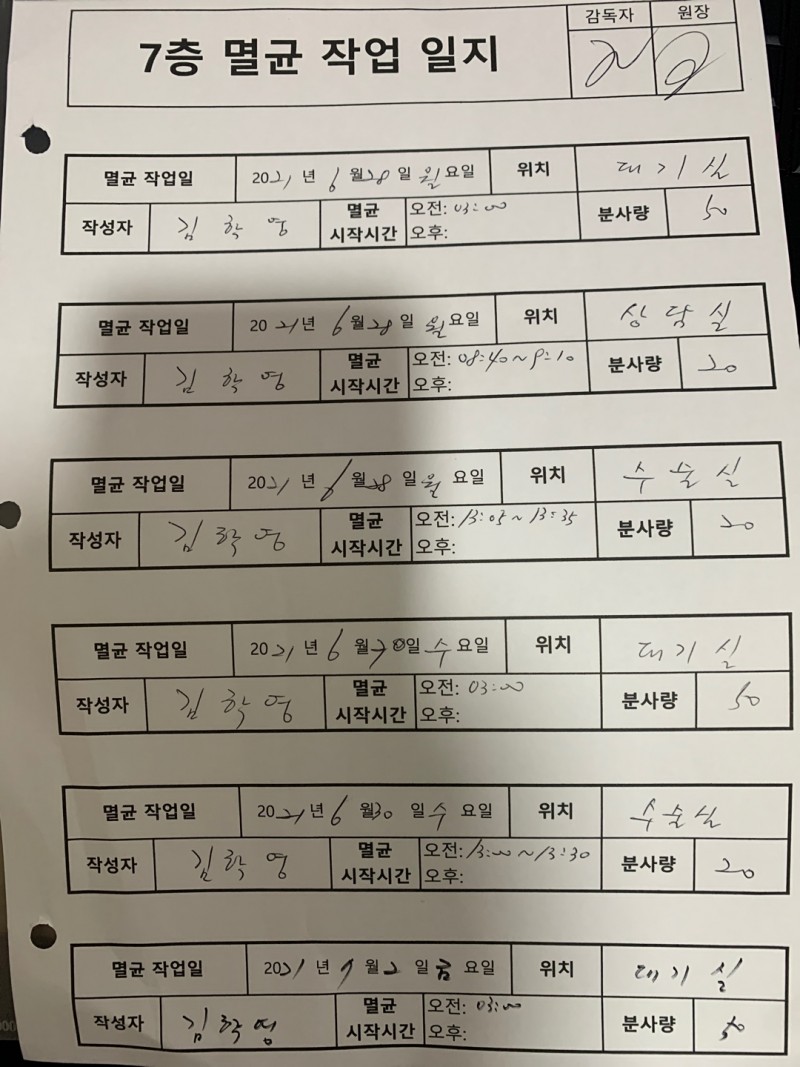 7층 멸균 작업 일지
감독자 원장
멸균 작업일 2021년 6월 28일 월요일 위치 대기실
작성자 김학영 멸균 시작시간 오전: 03:00 오후: 분사량 50
멸균 작업일 2021년 6월 28일 월요일 위치 상담실
작성자 김학영 멸균 시작시간 오전: 08:40~9:10 오후: 분사량 20
멸균 작업일 2021년 6월 28일 월요일 위치 수술실
작성자 김학영 멸균 시작시간 오전: 13:05~13:35 오후: 분사량 20
멸균 작업일 2021년 6월 30일 수요일 위치 대기실
작성자 김학영 멸균 시작시간 오전: 03:00 오후: 분사량 50
멸균 작업일 2021년 6월 30일 수요일 위치 수술실
작성자 김학영 멸균 시작시간 오전: 13:00~13:30 오후: 분사량 20
멸균 작업일 2021년 7월 2일 금요일 위치 대기실
작성자 김학영 멸균 시작시간 오전: 03:00 오후: 분사량 50